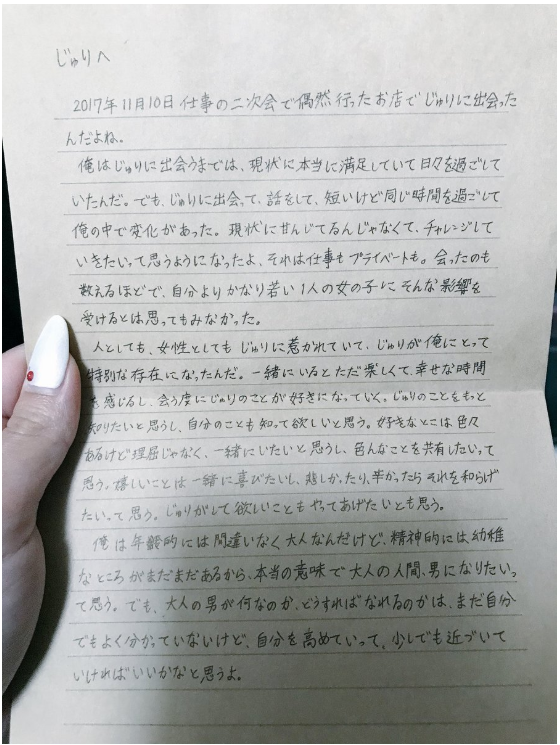 じゅりへ
2017年11月10日 仕事の二次会で偶然行ったお店でじゅりに出会った
んだよね。
俺はじゅりに出会うまでは、現状に本当に満足していて日々を過ごして
いたんだ。でも、じゅりに出会って、話をして、短いけど同じ時間を過ごして
俺の中で変化があった。現状に甘んじてるんじゃなくて、チャレンジして
いきたいって思うようになったよ、それは仕事もプライベートも。会ったのも
数えるほどで、自分よりかなり若い1人の女の子にそんな影響を
受けるとは思ってもみなかった。
人としても、女性としてもじゅりに惹かれていて、じゅりが俺にとって
特別な存在になったんだ。一緒にいるとただ楽しくて、幸せな時間
を感じるし、会う度にじゅりのことが好きになっていく。じゅりのことをもっと
知りたいと思うし、自分のことも知って欲しいと思う。好きなとこは色々
あるけど理屈じゃなく、一緒にいたいと思うし、色んなことを共有したいって
思う。嬉しいことは一緒に喜びたいし、悲しかったり、辛かったらそれを和らげ
たいって思う。じゅりがして欲しいこともやってあげたいとも思う。
俺は年齢的には間違いなく大人なんだけど、精神的には幼稚
なところがまだまだあるから、本当の意味で大人の人間、男になりたいっ
て思う。でも、大人の男が何なのか、どうすればなれるのかは、まだ自分
でもよく分かっていないけど、自分を高めていって、少しでも近づいて
いければいいかなと思うよ。